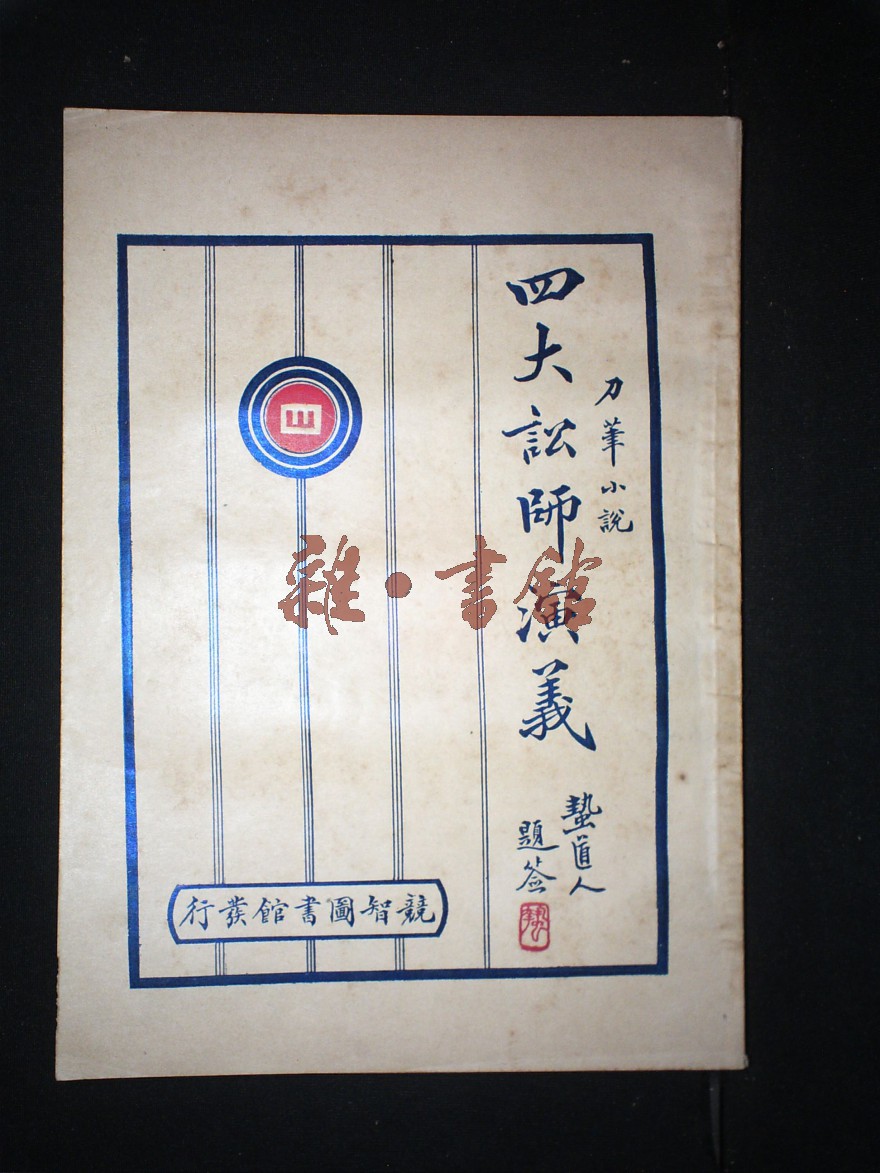 刀筆小說
四大訟師演義
蟄道人
題簽
競智圖書館發行
四
雜·書館